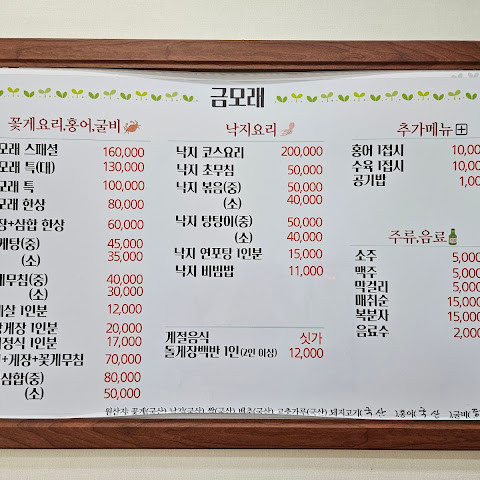 금모래
꽃게요리,홍어,굴비
모래 스페셜 160,000
모래 특(대) 130,000
모래 특 100,000
모래 한상 80,000
장+삼합 한상 60,000
(중) 45,000
(소) 35,000
무침(중) 40,000
(소) 30,000
살 1인분 12,000
게장 1인분 20,000
정식 1인분 17,000
+게장+꽃게무침 70,000
삼합(중) 80,000
(소) 50,000
낙지요리
낙지 코스요리 200,000
낙지 초무침 50,000
낙지 볶음(중) 50,000
(소) 40,000
낙지 탕탕이(중) 50,000
(소) 40,000
낙지 연포탕 1인분 15,000
낙지 비빔밥 11,000
계절음식 싯가
돌게장백반 1인(2인 이상) 12,000
추가메뉴
홍어 1접시 10,00
수육 1접시 10,00
공기밥 1,00
주류,음료
소주 5,000
맥주 5,000
막걸리 5,000
매취순 15,000
복분자 15,000
음료수 2,000
원산지 꽃게(국산) 낙지(국산) 쌀(국산) 배추(국산) 고춧가루(국산) 돼지고기(국산 ),홍어(국산 ),굴비(